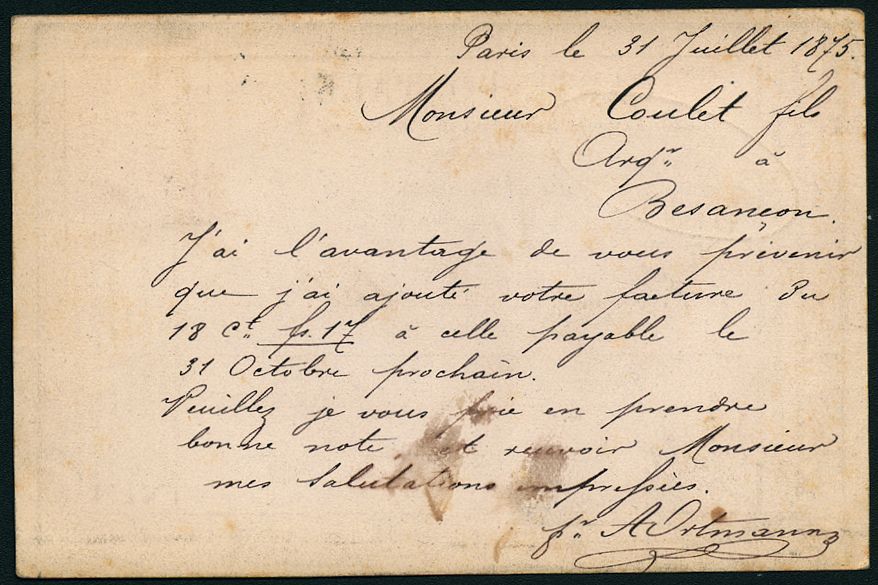 Paris le 31 Juillet 1875.
Monsieur Coulet fils
Arqr à
Besançon.
J'ai l'avantage de vous prévenir
que j'ai ajouté votre facture du
18 ct. fs. 17 à celle payable le
31 Octobre prochain.
Veuillez je vous prie en prendre
bonne note et recevoir Monsieur
mes Salutations empressées.
pr A Ortmann